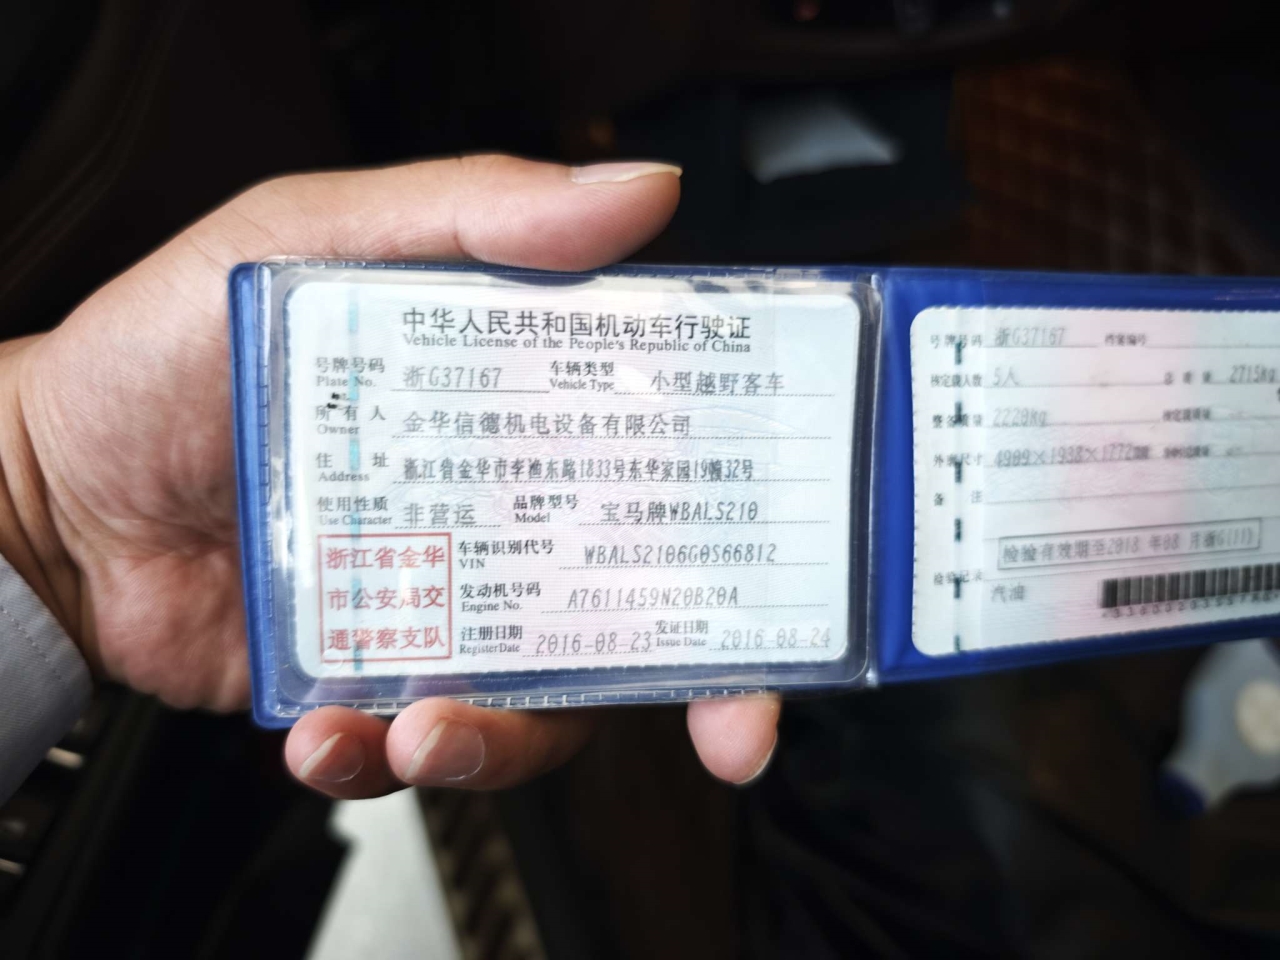 中华人民共和国机动车行驶证
Vehicle License of the People's Republic of China
号牌号码 浙G37167 车辆类型 小型越野客车
Plate No. Vehicle Type
所有人 金华信德机电设备有限公司
Owner
住址 浙江省金华市李渔东路1833号东华家园19幢32号
Address
使用性质 非营运 品牌型号 宝马牌WBALS210
Use Character Model
浙江省金华
市公安局交
通警察支队
车辆识别代号 WBALS2106G0S66812
VIN
发动机号码 A7611459N20B20A
Engine No.
注册日期 2016-08-23 发证日期 2016-08-24
Register Date Issue Date
号牌号码 浙G37167 档案编号
核定载人数 5人 总质量 2715kg
整备质量 2220kg 核定载质量
外廓尺寸 4909×1938×1772
备注
检验有效期至2018年08月浙G(11)
检验记录
汽油